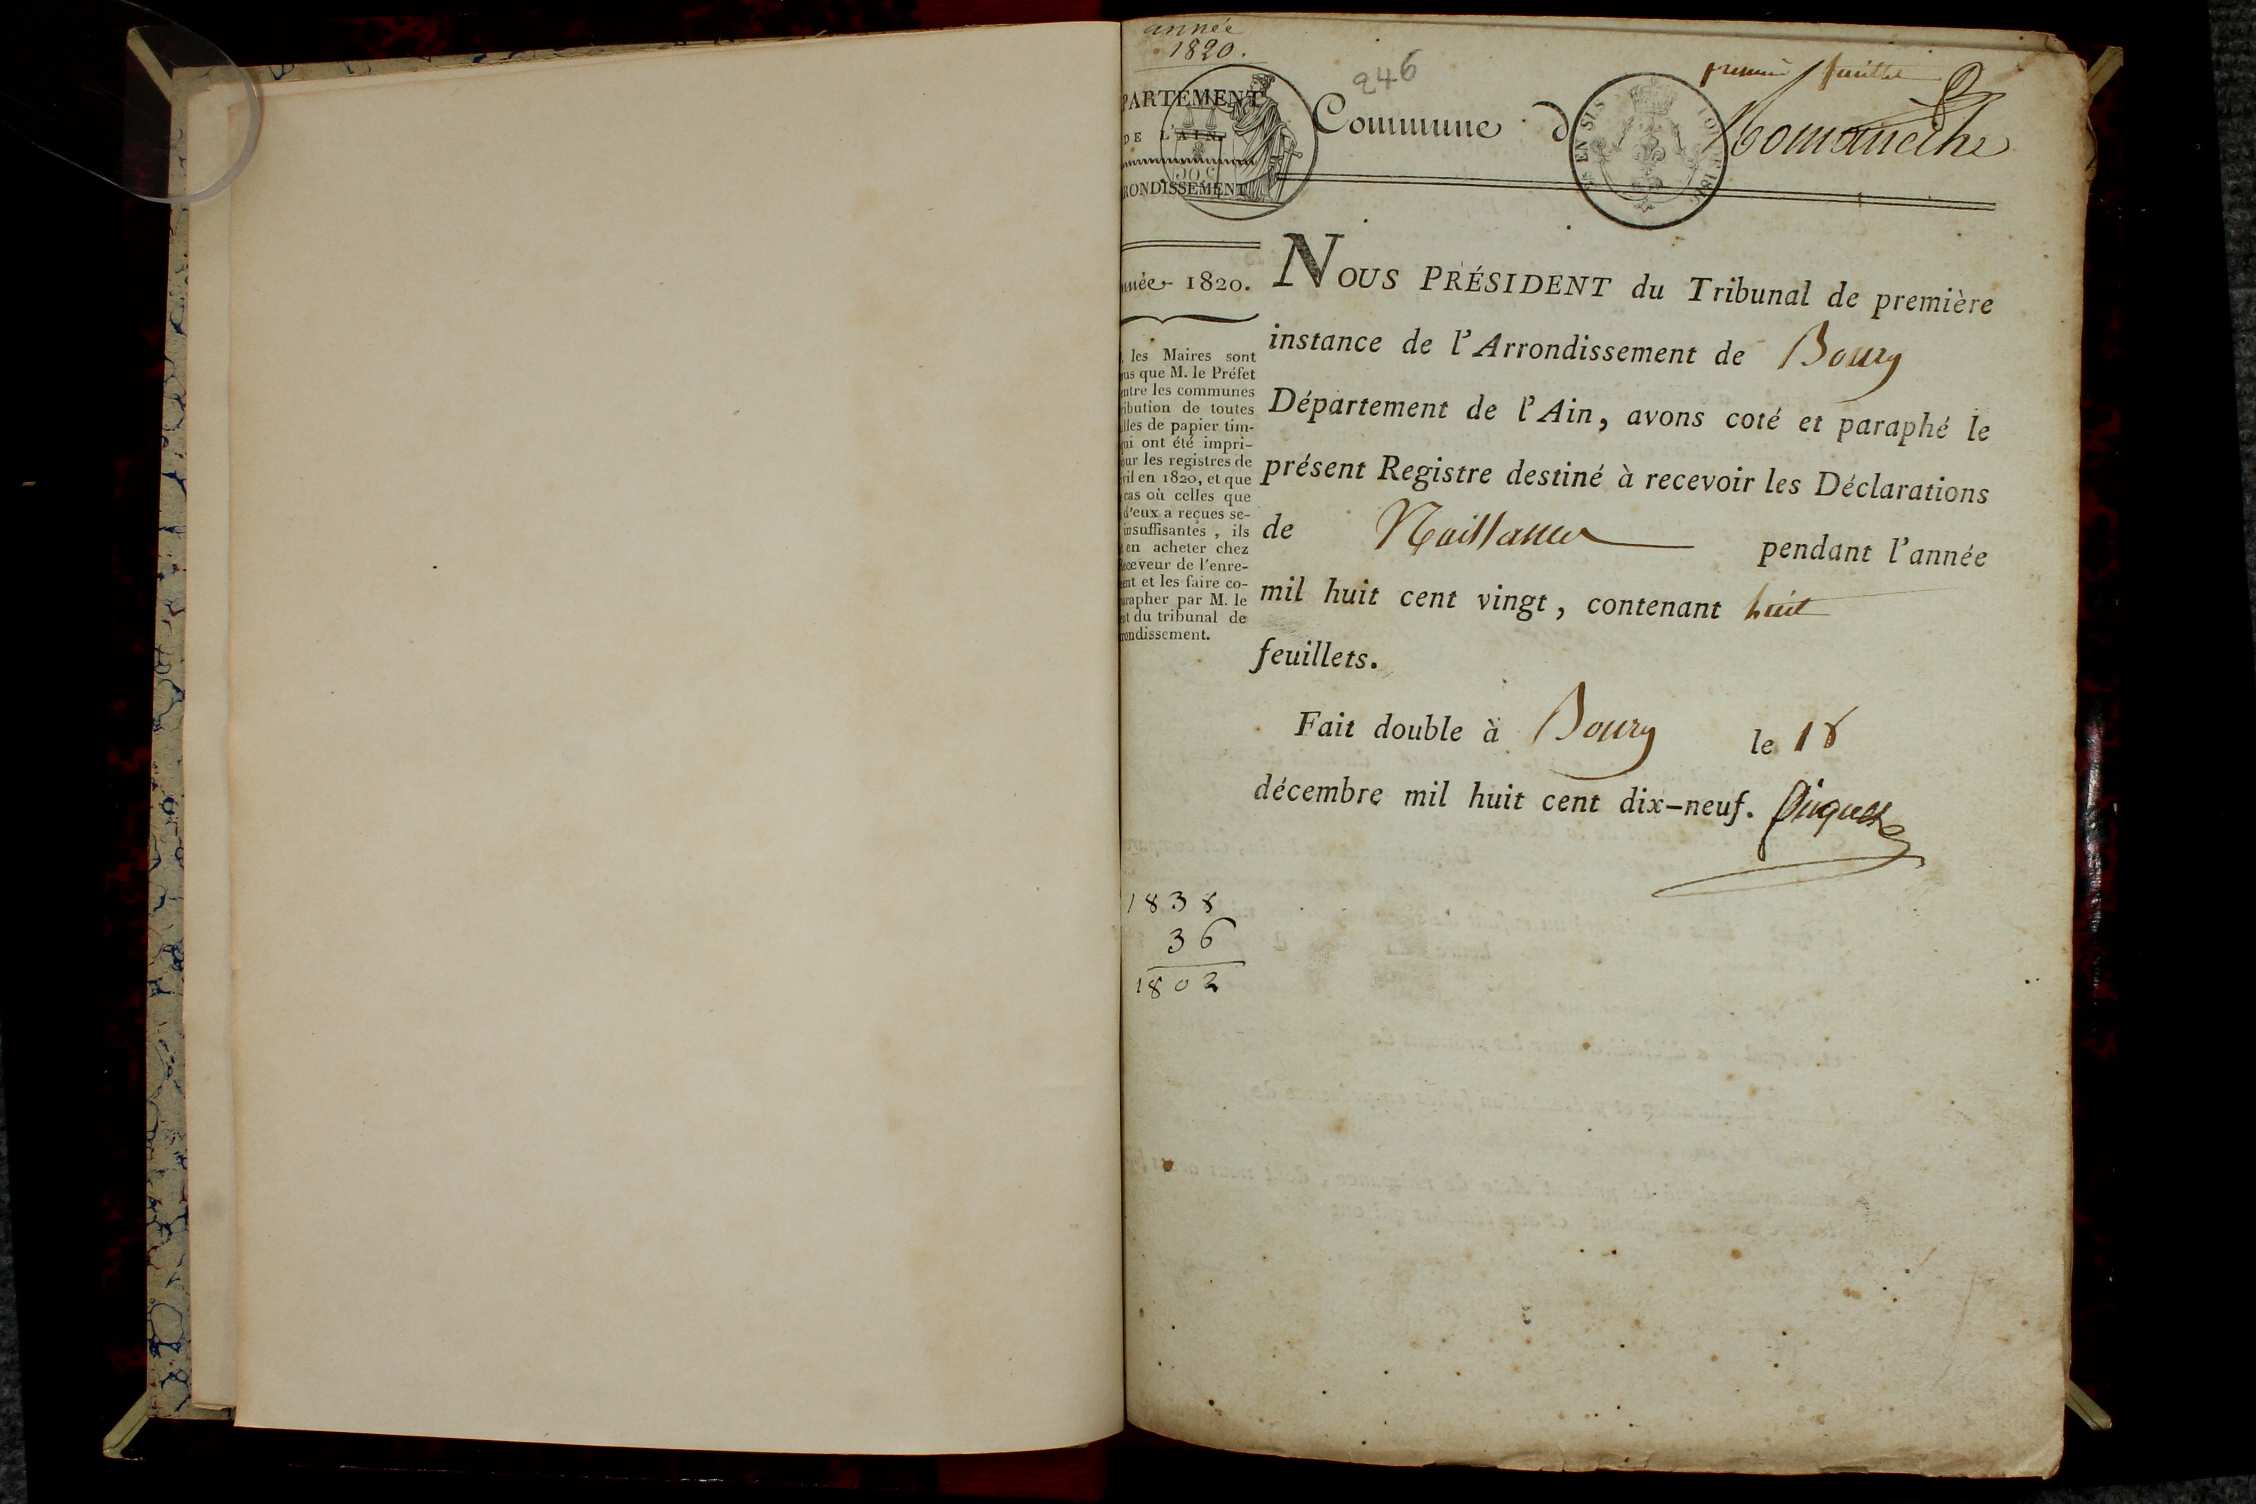 année
1820.
246
premier feuillet
PARTEMENT
DE L'AIN.
RONDISSEMENT
Commune d
Romanèche
nnée 1820.
les Maires sont
us que M. le Préfet
entre les communes
ribution de toutes
illes de papier tim-
qui ont été impri-
our les registres de
vil en 1820, et que
cas où celles que
d'eux a reçues se-
insuffisantes, ils
en acheter chez
Receveur de l'enre-
ent et les faire co-
arapher par M. le
nt du tribunal de
rondissement.
NOUS PRÉSIDENT du Tribunal de première
instance de l'Arrondissement de Bourg
Département de l'Ain, avons coté et paraphé le
présent Registre destiné à recevoir les Déclarations
de Naissance pendant l'année
mil huit cent vingt, contenant huit
feuillets.
Fait double à Bourg le 18
décembre mil huit cent dix-neuf.
1838
36
1802